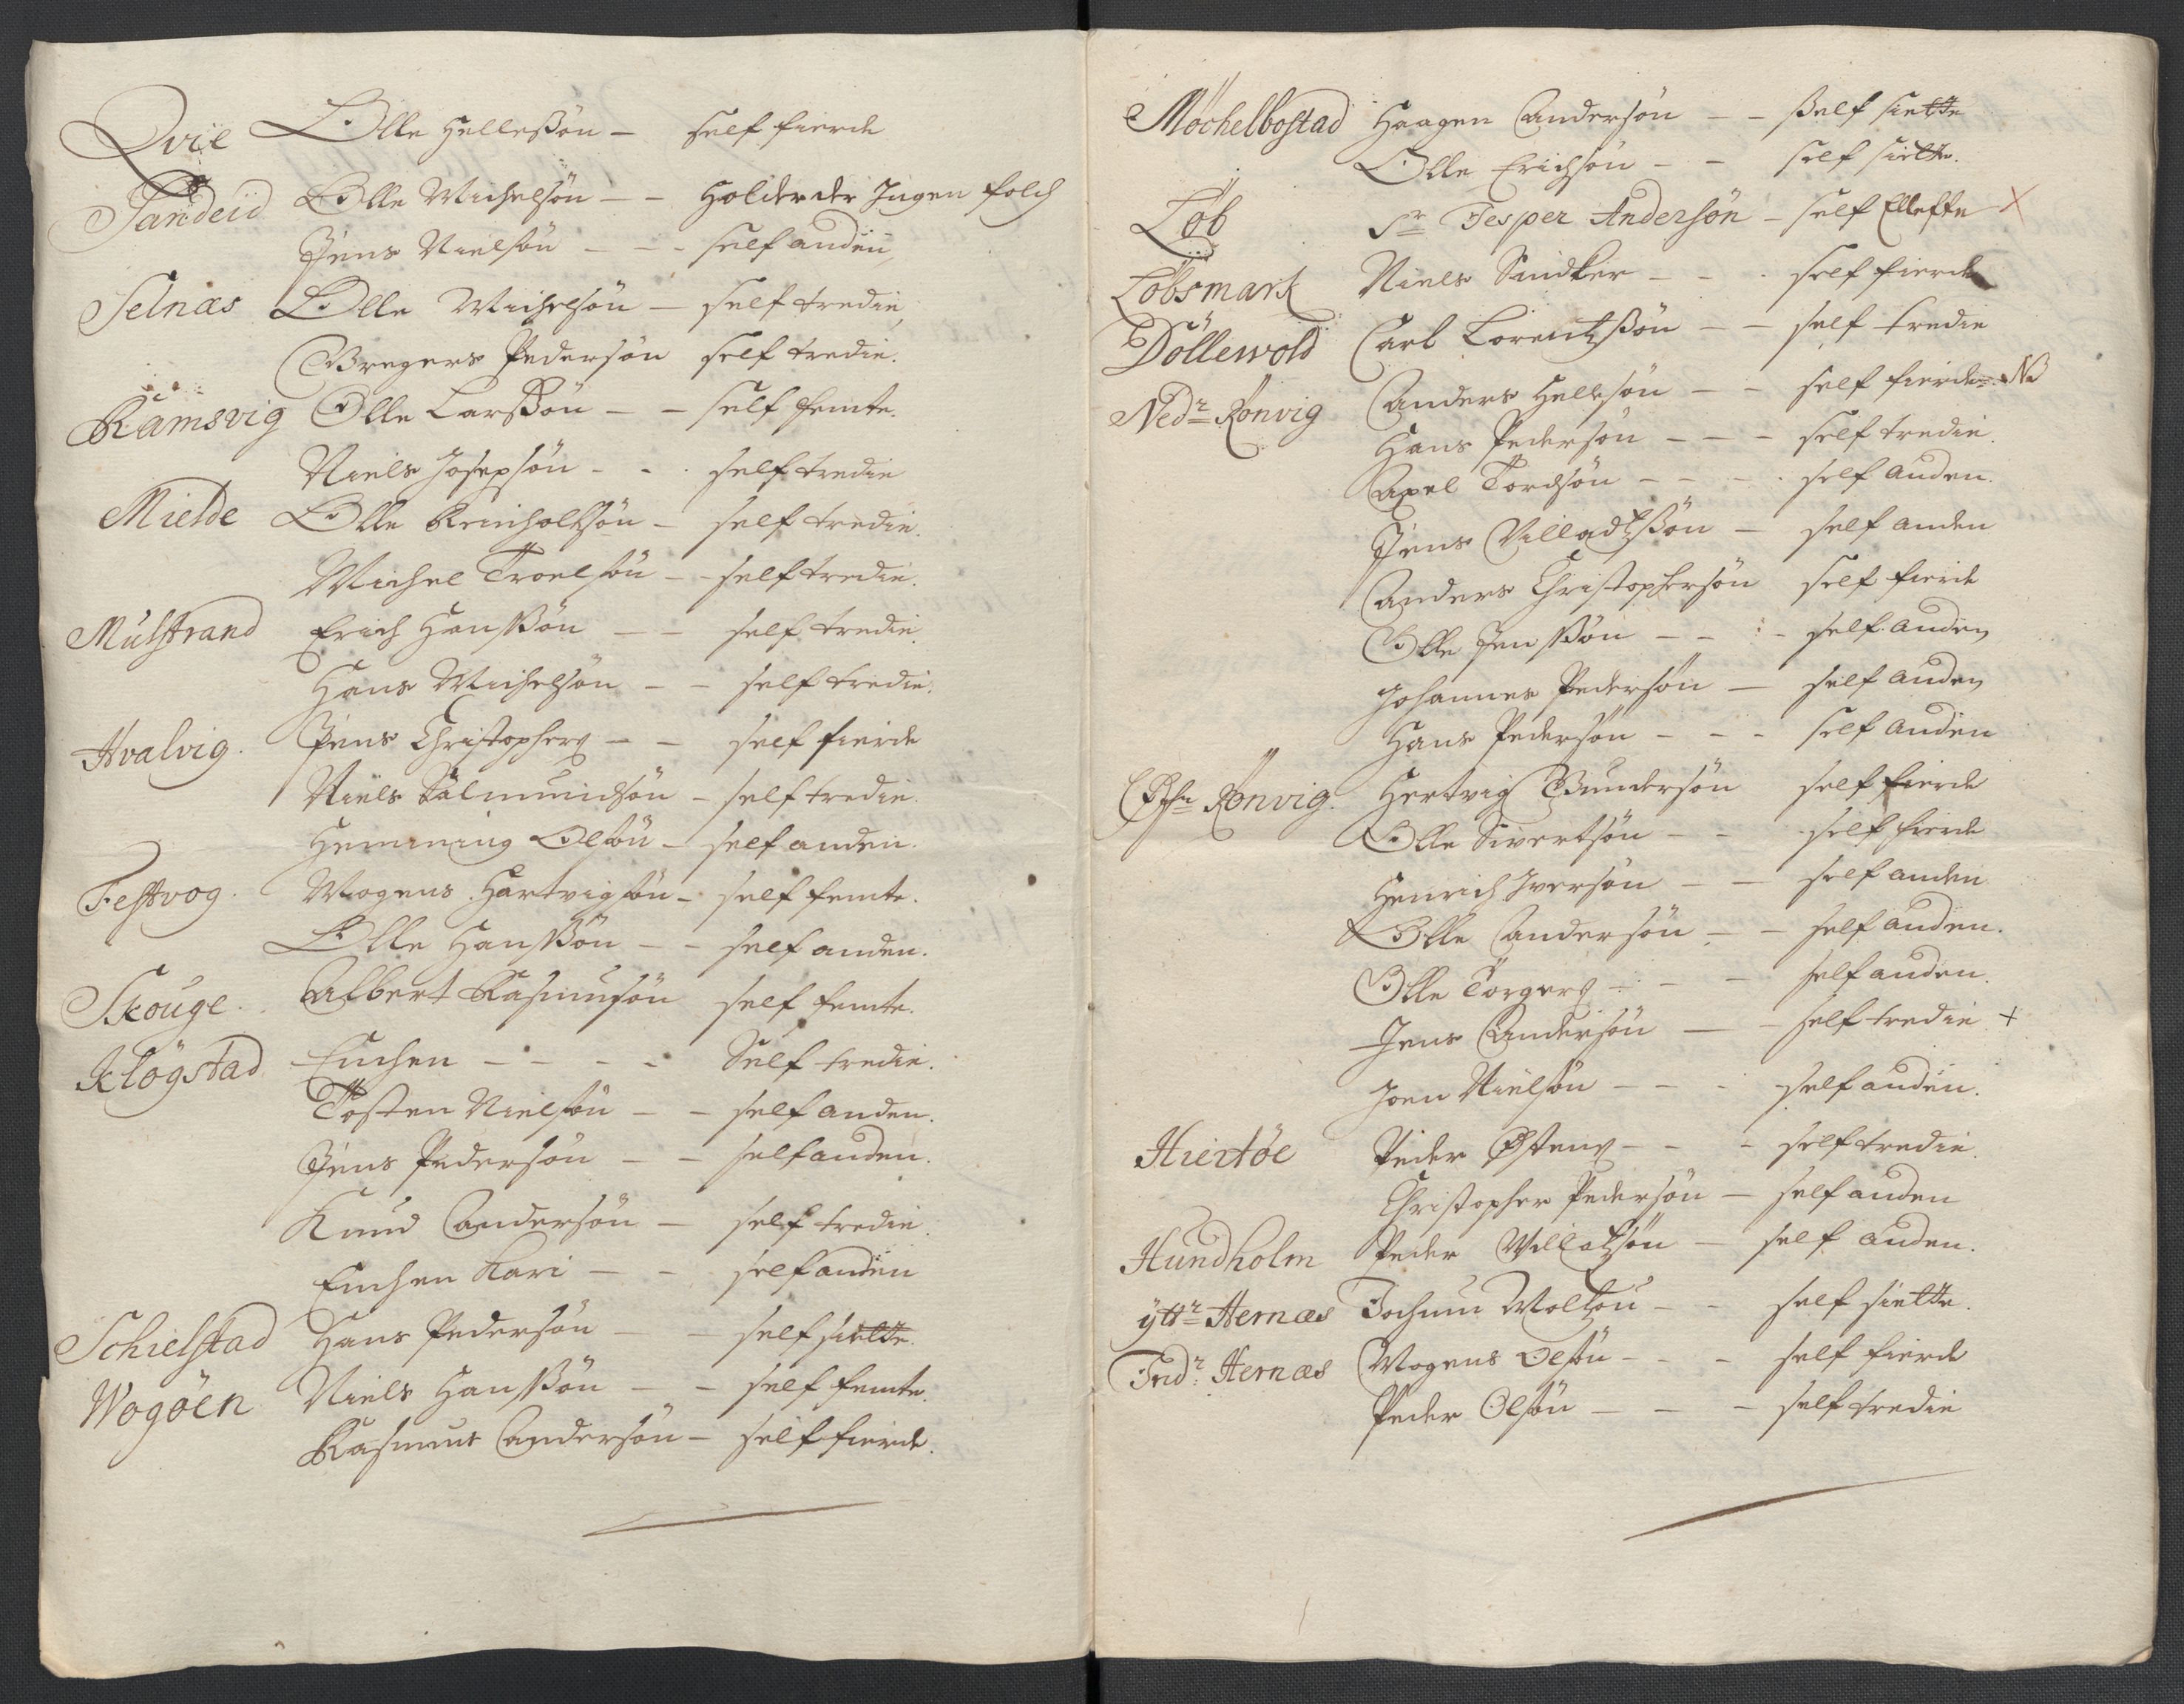 Qvie Olle Hellessøn — self fierde
Sandeid Olle Michelsøn — — Holder der Ingen folch
Jens Nielsøn — — - self anden
Selnæs Olle Michelsøn — self tredie
Gregers Pedersøn self tredie.
Ramsvig Olle Larssøn — — self femte.
Niels Josepsøn - - . self tredie
Mielde Olle Reinholtsøn — self tredie.
Michel Troelsøn — - self tredie.
Mulstrand Erich Hanssøn — — self tredie.
Hans Michelsøn — — self tredie.
Hvalvig. Jens Christophers — — self fierde
Niels Salmundsøn — self tredie.
Hemming Olsøn — self anden.
Festvog. Mogens Hartvigsøn — self femte.
Olle Hanssøn — — self anden.
Skouge. Albert Rasmusøn self femte.
Klogstad Enchen — — — — Self tredie.
Tosten Nielsøn — — self anden.
Jens Pedersøn — — self anden.
Knud Andersøn — self tredie.
Enchen Kari — — self anden
Schielstad Hans Pedersøn — — self siette.
Wogøen Niels Hanssøn — — self femte.
Rasmus Andersøn — self fierde.
Møchelbostad Haagen Andersøn — — self siette
Olle Erichsøn — — self siette.
Løb Sr Jesper Andersøn — self Elleffte X
Løbsmark Niels Snidker — — . self fierde
Døllewold Carl Lorentzsøn — — self tredie
Nedr Rønvig Anders Hellesøn — — self fierde. NB
Hans Pedersøn — — — self tredie.
Axel Tordsøn — — — . self anden.
Jens Villadtzsøn — self anden
Anders Christophersøn self fierde
Olle Jenssøn — — : - self anden
Johannes Pedersøn — self anden
Hans Pedersøn — — - self anden
Øfre Rønvig. Hertvig Gundersøn self fierde
Olle Sivertsøn — — self fierde
Henrich Iversøn — — self anden
Olle Andersøn — — self anden.
Olle Torgers — — — self anden.
Jens Andersøn — - self tredie +
Joen Nielsøn — — - self anden.
Hiertøe Peder Østens — — - self tredie.
Christopher Pedersøn — self anden
Hundholm Peder Willatzsøn — self anden.
ÿttr Hernæs Jochum Moltzou — — self siette.
Indr Hernæs Mogens Olsøn — — self fierde
Peder Olsøn — — — self tredie